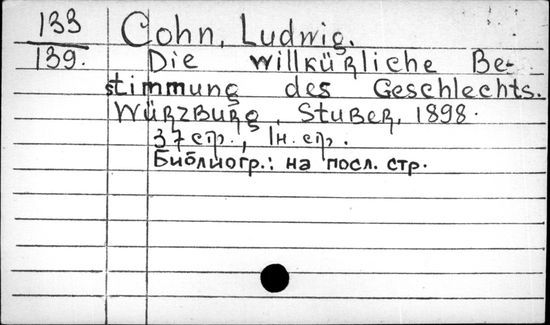 133
139.
Cohn, Ludwig.
Die willkürliche Be-
stimmung des Geschlechts.
Würzburg, Stuber, 1898.
37 стр., 1 н. стр.
Библиогр.: на посл. стр.